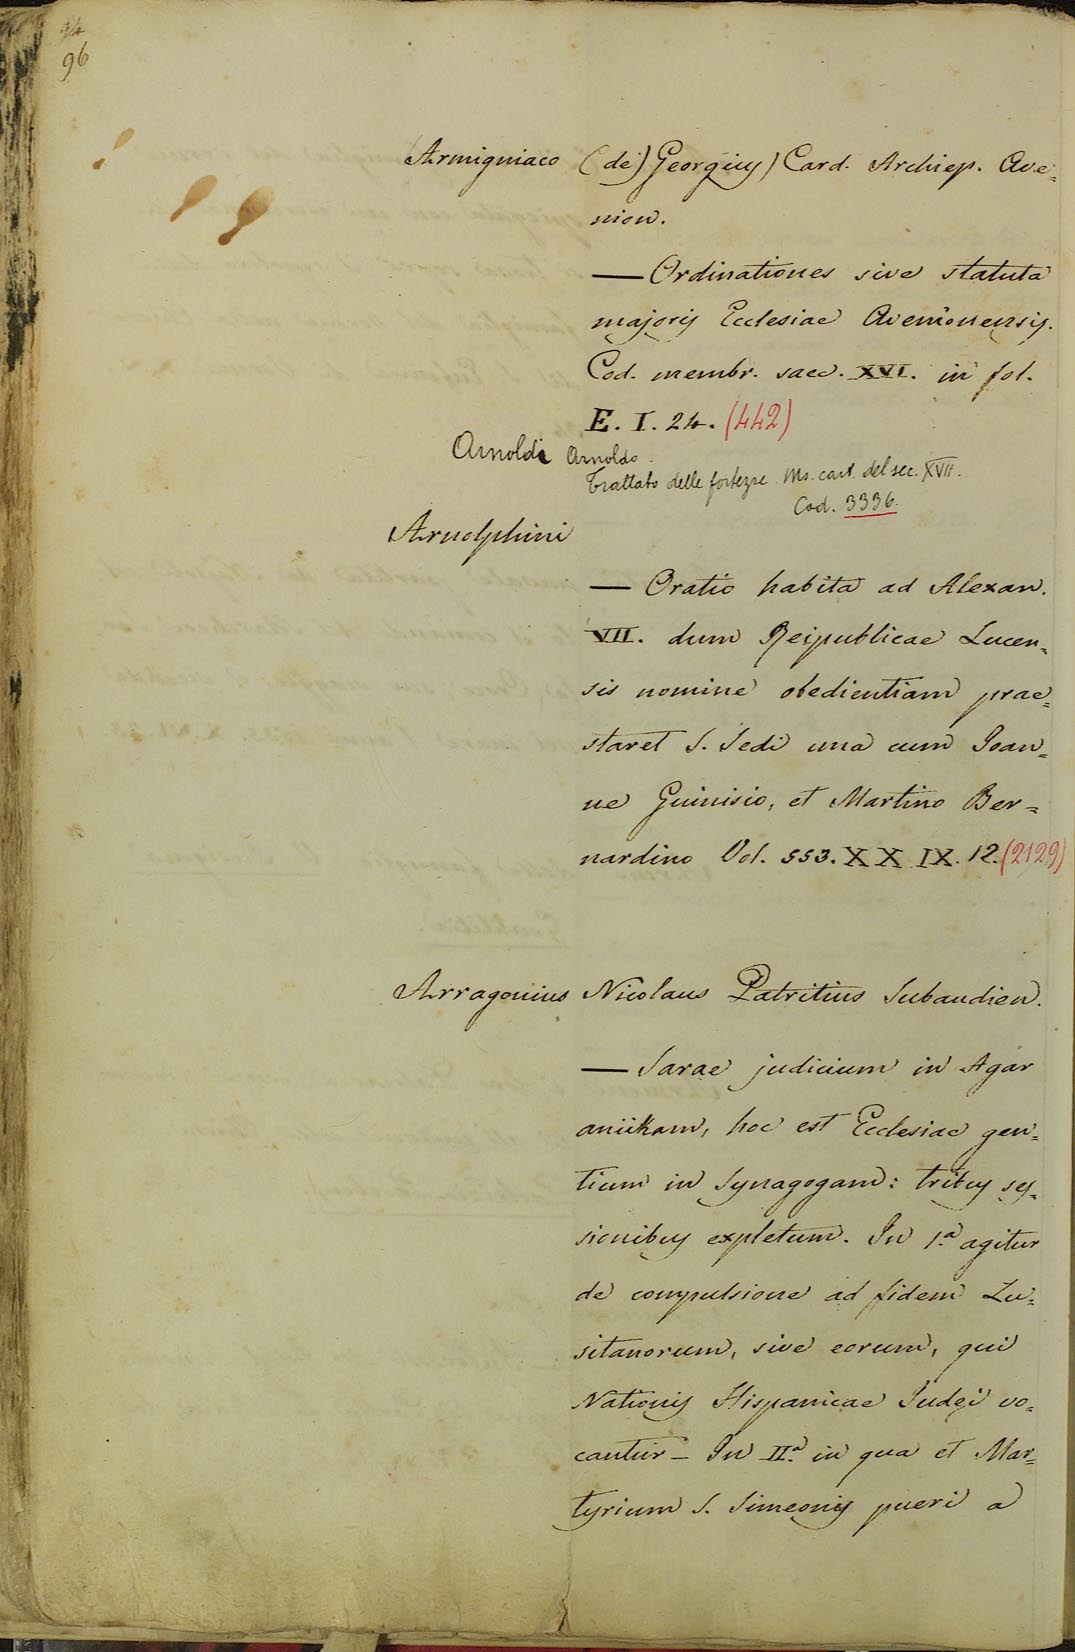 94
96
Armigniaco (de) Georgius) Card. Archiep. Ave=
nion.
— Ordinationes sive statuta
majoris Ecclesiae Avenionensis.
Cod. membr. saec. XVI. in fol.
E. I. 24. (442)
Arnoldi Arnoldo.
Trattato delle fortezze. Ms. cart. del sec. XVII.
Cod. 3336.
Arnolphini
— Oratio habita ad Alexan.
VII. dum Reipublicae Lucen=
sis nomine obedientiam prae=
staret S. Sedi una cum Joan=
ne Guinisio, et Martino Ber=
nardino Vol. 553. XX IX. 12. (2129)
Arragonius Nicolaus Patritius Subaudien.
— Sarae judicium in Agar
aniikam, hoc est Ecclesiae gen=
tium in Synagogam: tribus ses=
sionibus expletum. In 1.a agitur
de compulsione ad fidem Lu=
sitanorum, sive eorum, qui
Nationis Hispanicae Judei vo=
cantur – In II.a in qua et Mar=
tyrium S. Simeonis pueri a